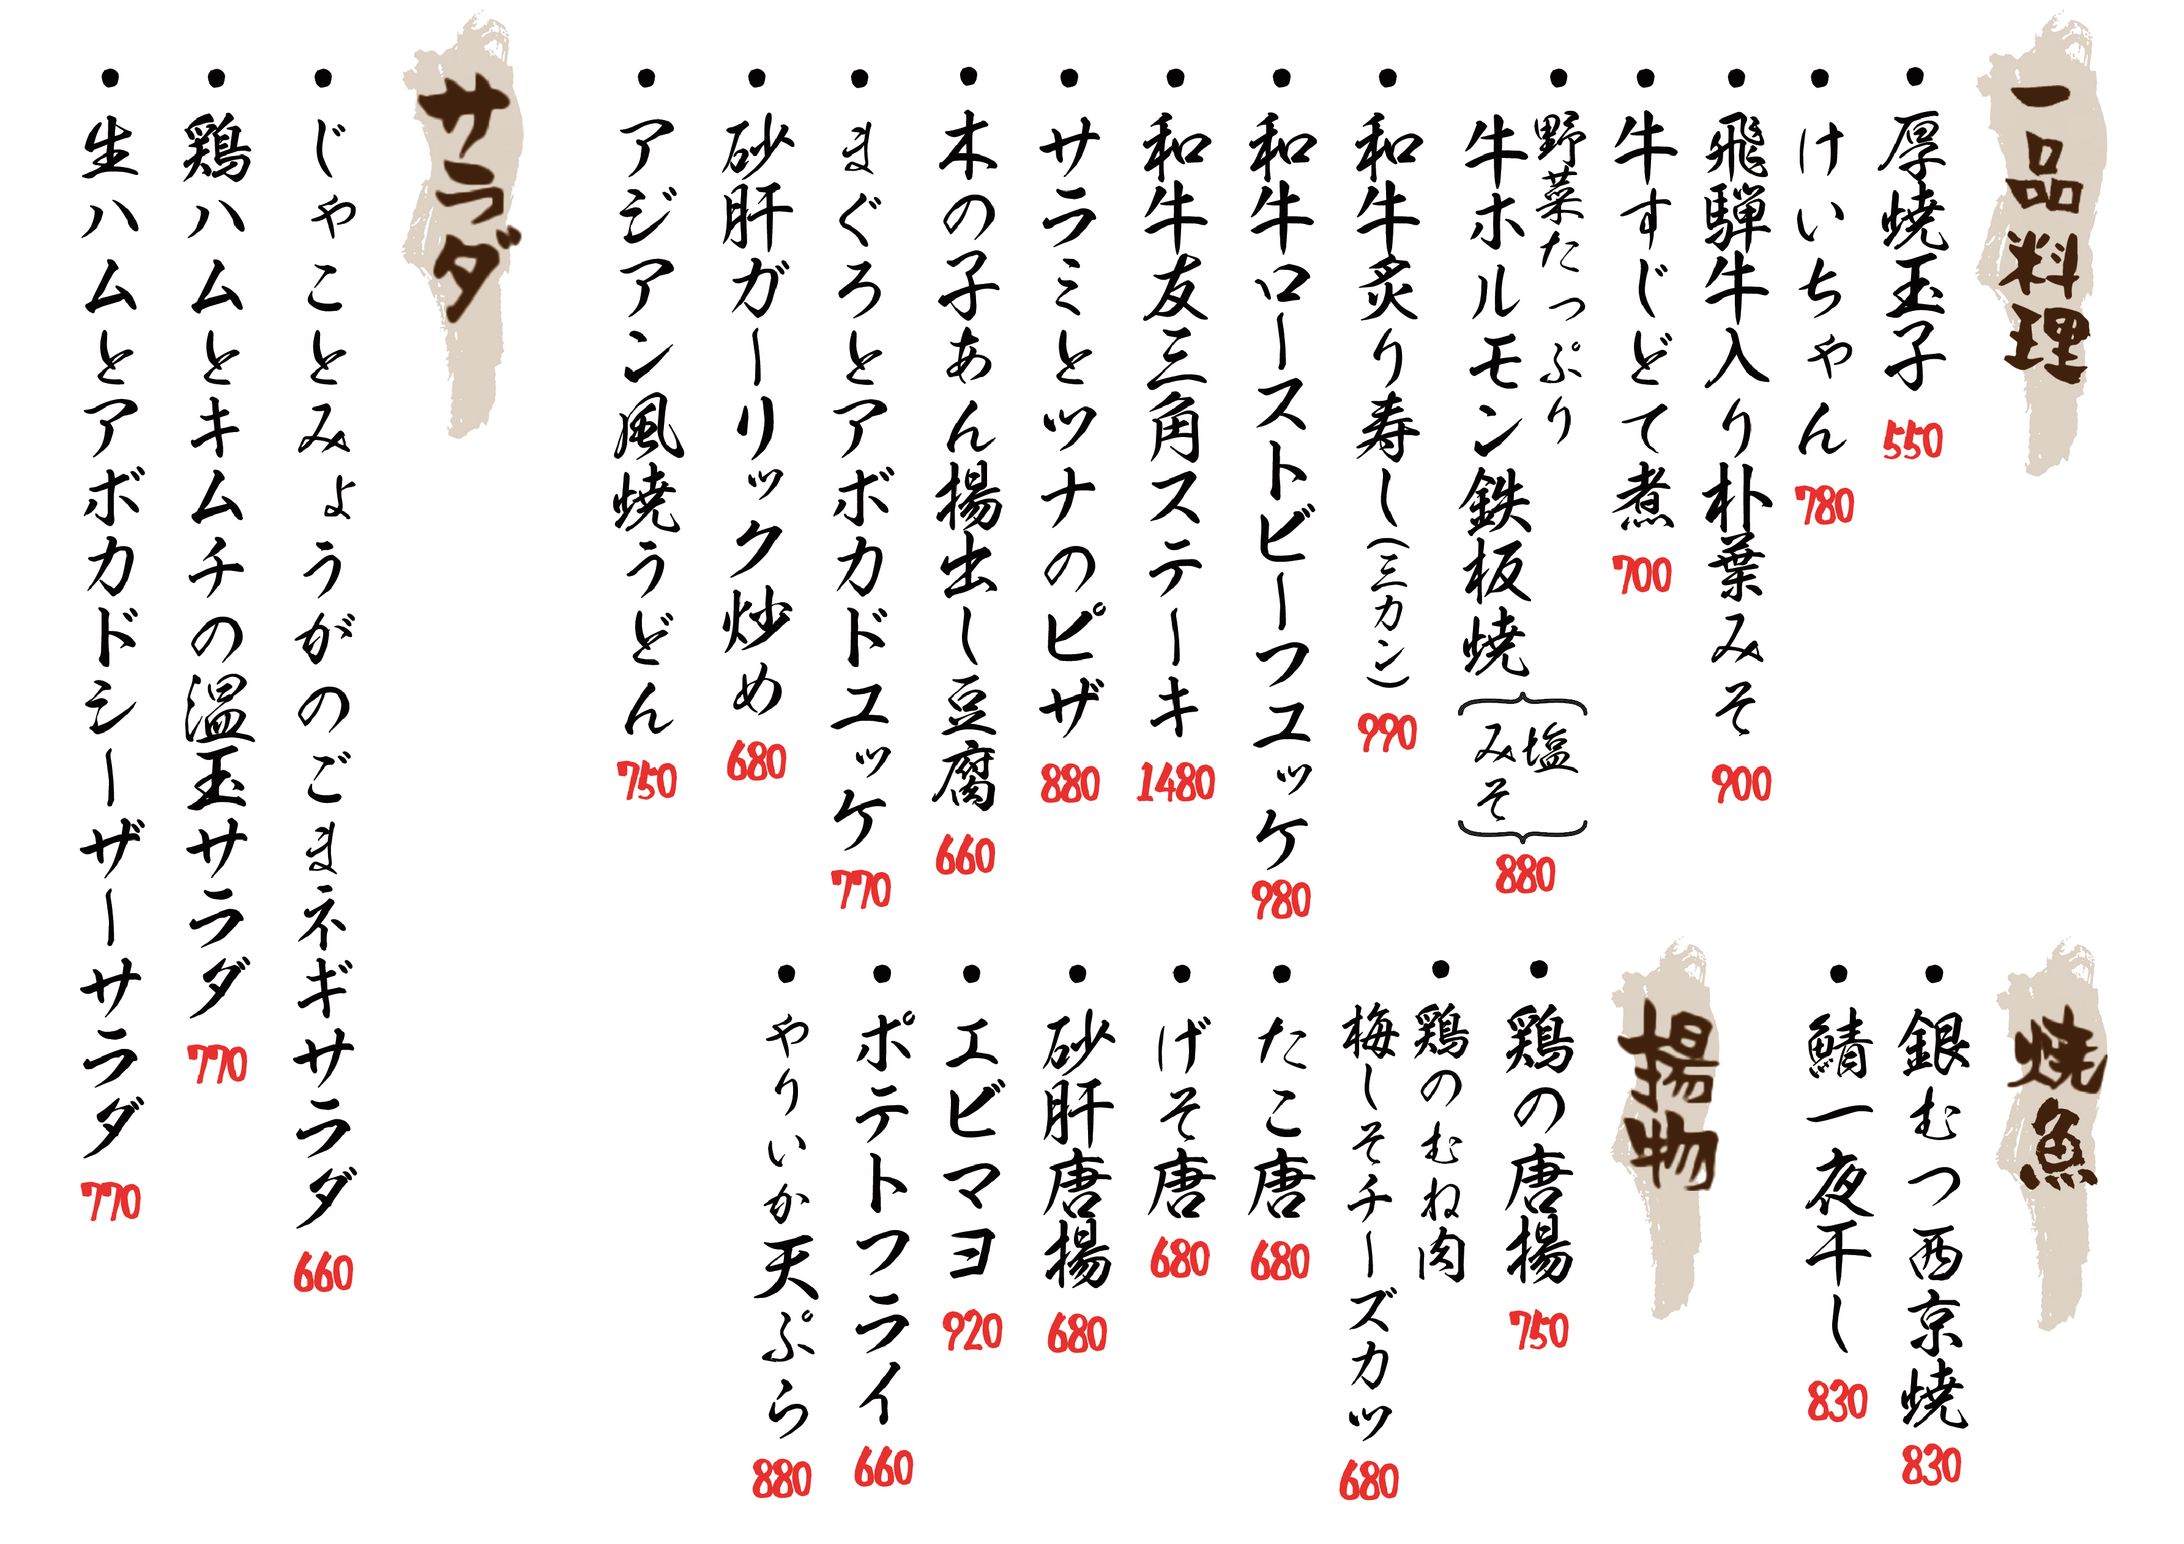 一品料理
・厚焼玉子 550
・けいちゃん 780
・飛騨牛入り朴葉みそ 900
・牛すじどて煮 700
・野菜たっぷり
牛ホルモン鉄板焼
塩
みそ
880
・和牛炙り寿し(三カン) 990
・和牛ローストビーフユッケ 980
・和牛友三角ステーキ 1480
・サラミとツナのピザ 880
・木の子あん揚出し豆腐 660
・まぐろとアボカドユッケ 770
・砂肝ガーリック炒め 680
・アジアン風焼うどん 750
サラダ
・じゃことみょうがのごまネギサラダ 660
・鶏ハムとキムチの温玉サラダ 770
・生ハムとアボカドシーザーサラダ 770
焼魚
・銀むつ西京焼 830
・鯖一夜干し 830
揚物
・鶏の唐揚 750
・鶏のむね肉
梅しそチーズカツ 680
・たこ唐 680
・げそ唐 680
・砂肝唐揚 680
・エビマヨ 920
・ポテトフライ 660
・やりいか天ぷら 880